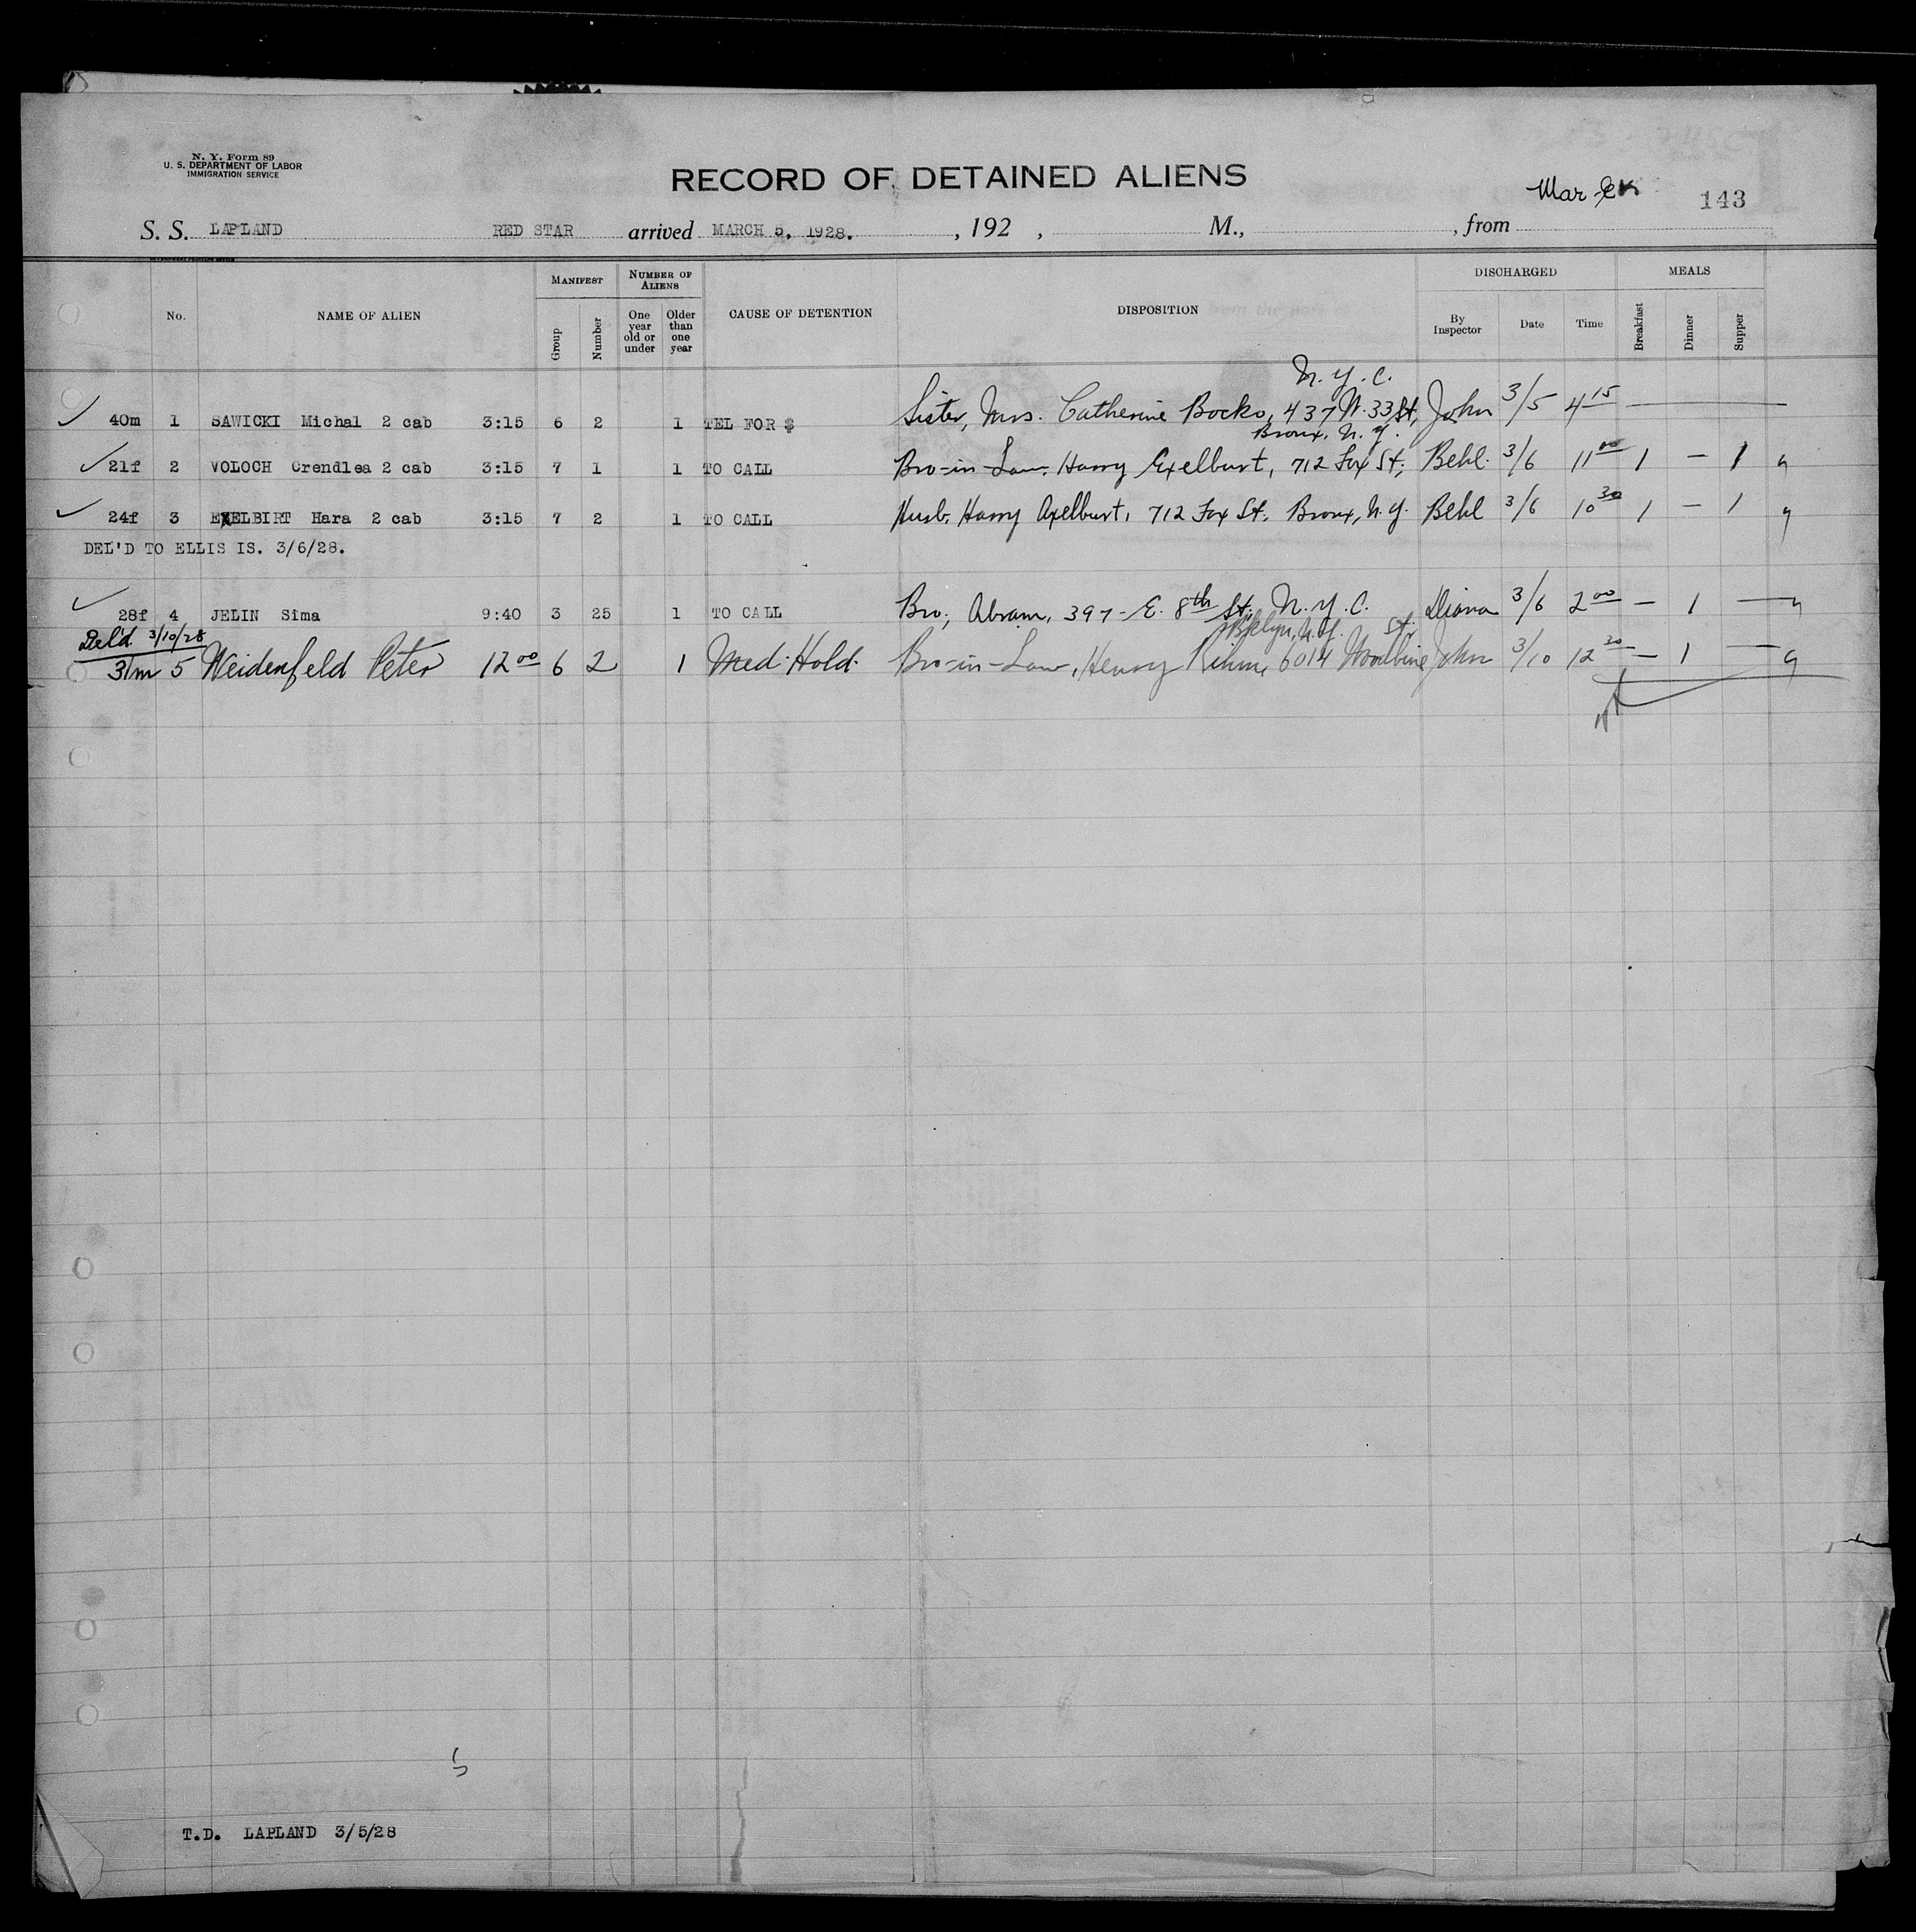 N. Y. Form 89
U. S. DEPARTMENT OF LABOR
IMMIGRATION SERVICE
RECORD OF DETAINED ALIENS
143
S. S. LAPLAND RED STAR arrived MARCH 5, 1928. , 192 , M., , from
No. NAME OF ALIEN MANIFEST Group Number NUMBER OF ALIENS One year old or under Older than one year CAUSE OF DETENTION DISPOSITION DISCHARGED By Inspector Date Time MEALS Breakfast Dinner Supper
N.Y.C.
40m 1 SAWICKI Michal 2 cab 3:15 6 2 1 TEL FOR $ Sister, Mrs. Catherine Bocko, 437 W. 33 St, John 3/5 4 15 —
Bronx, N.Y.
21f 2 VOLOCH Crendlea 2 cab 3:15 7 1 1 TO CALL Bro-in-Law, Harry Exelburt, 712 Fox St; Behl. 3/6 11 00 1 — 1
24f 3 EXELBIRT Hara 2 cab 3:15 7 2 1 TO CALL Husb, Harry Axelburt, 712 Fox St. Bronx, N.Y. Behl 3/6 10 30 1 — 1
DEL'D TO ELLIS IS. 3/6/28.
28f 4 JELIN Sima 9:40 3 25 1 TO CALL Bro; Abram, 397-E. 8th St. N.Y.C. Diana 3/6 2 00 — 1 —
Del'd 3/10/28 Bklyn, N.Y. St.
31m 5 Weidenfeld Peter 12 00 6 2 1 Med. Hold. Bro-in-Law, Henry Rihm, 6014 Woodbine John 3/10 12 20 — 1 —
T.D. LAPLAND 3/5/28